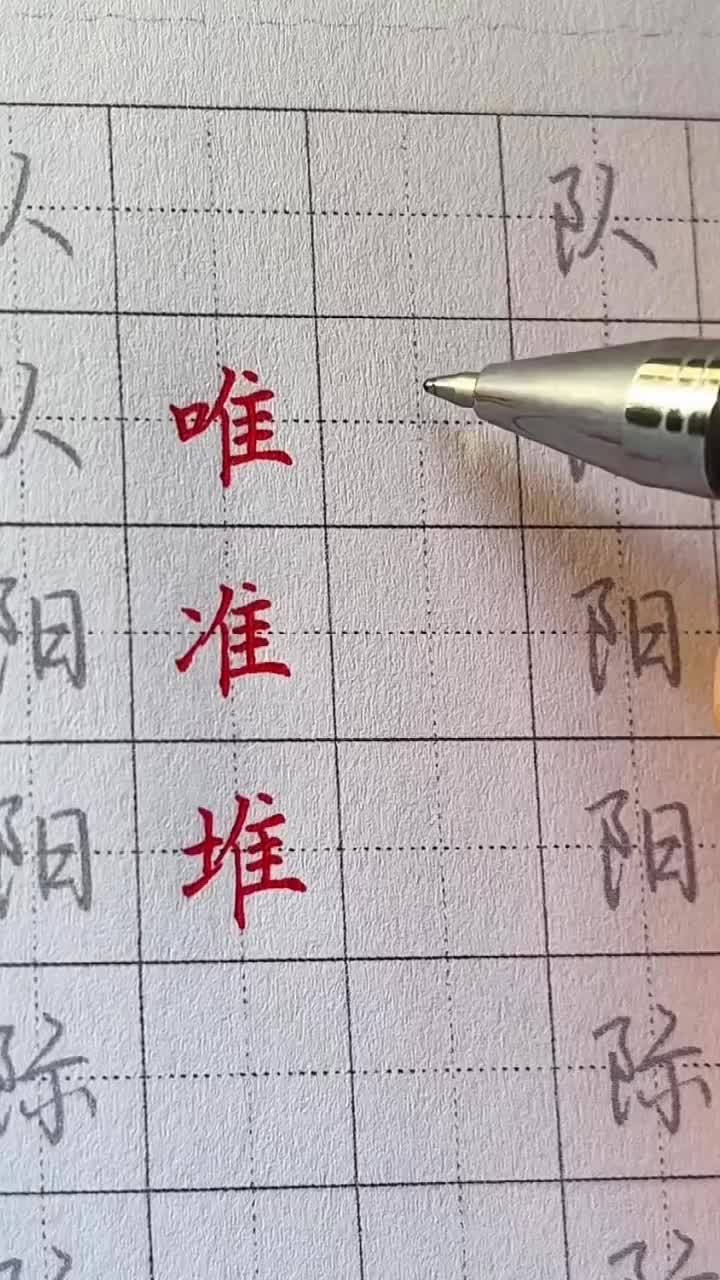 队 队
队 唯
阳 准 阳
阳 堆 阳
际 际